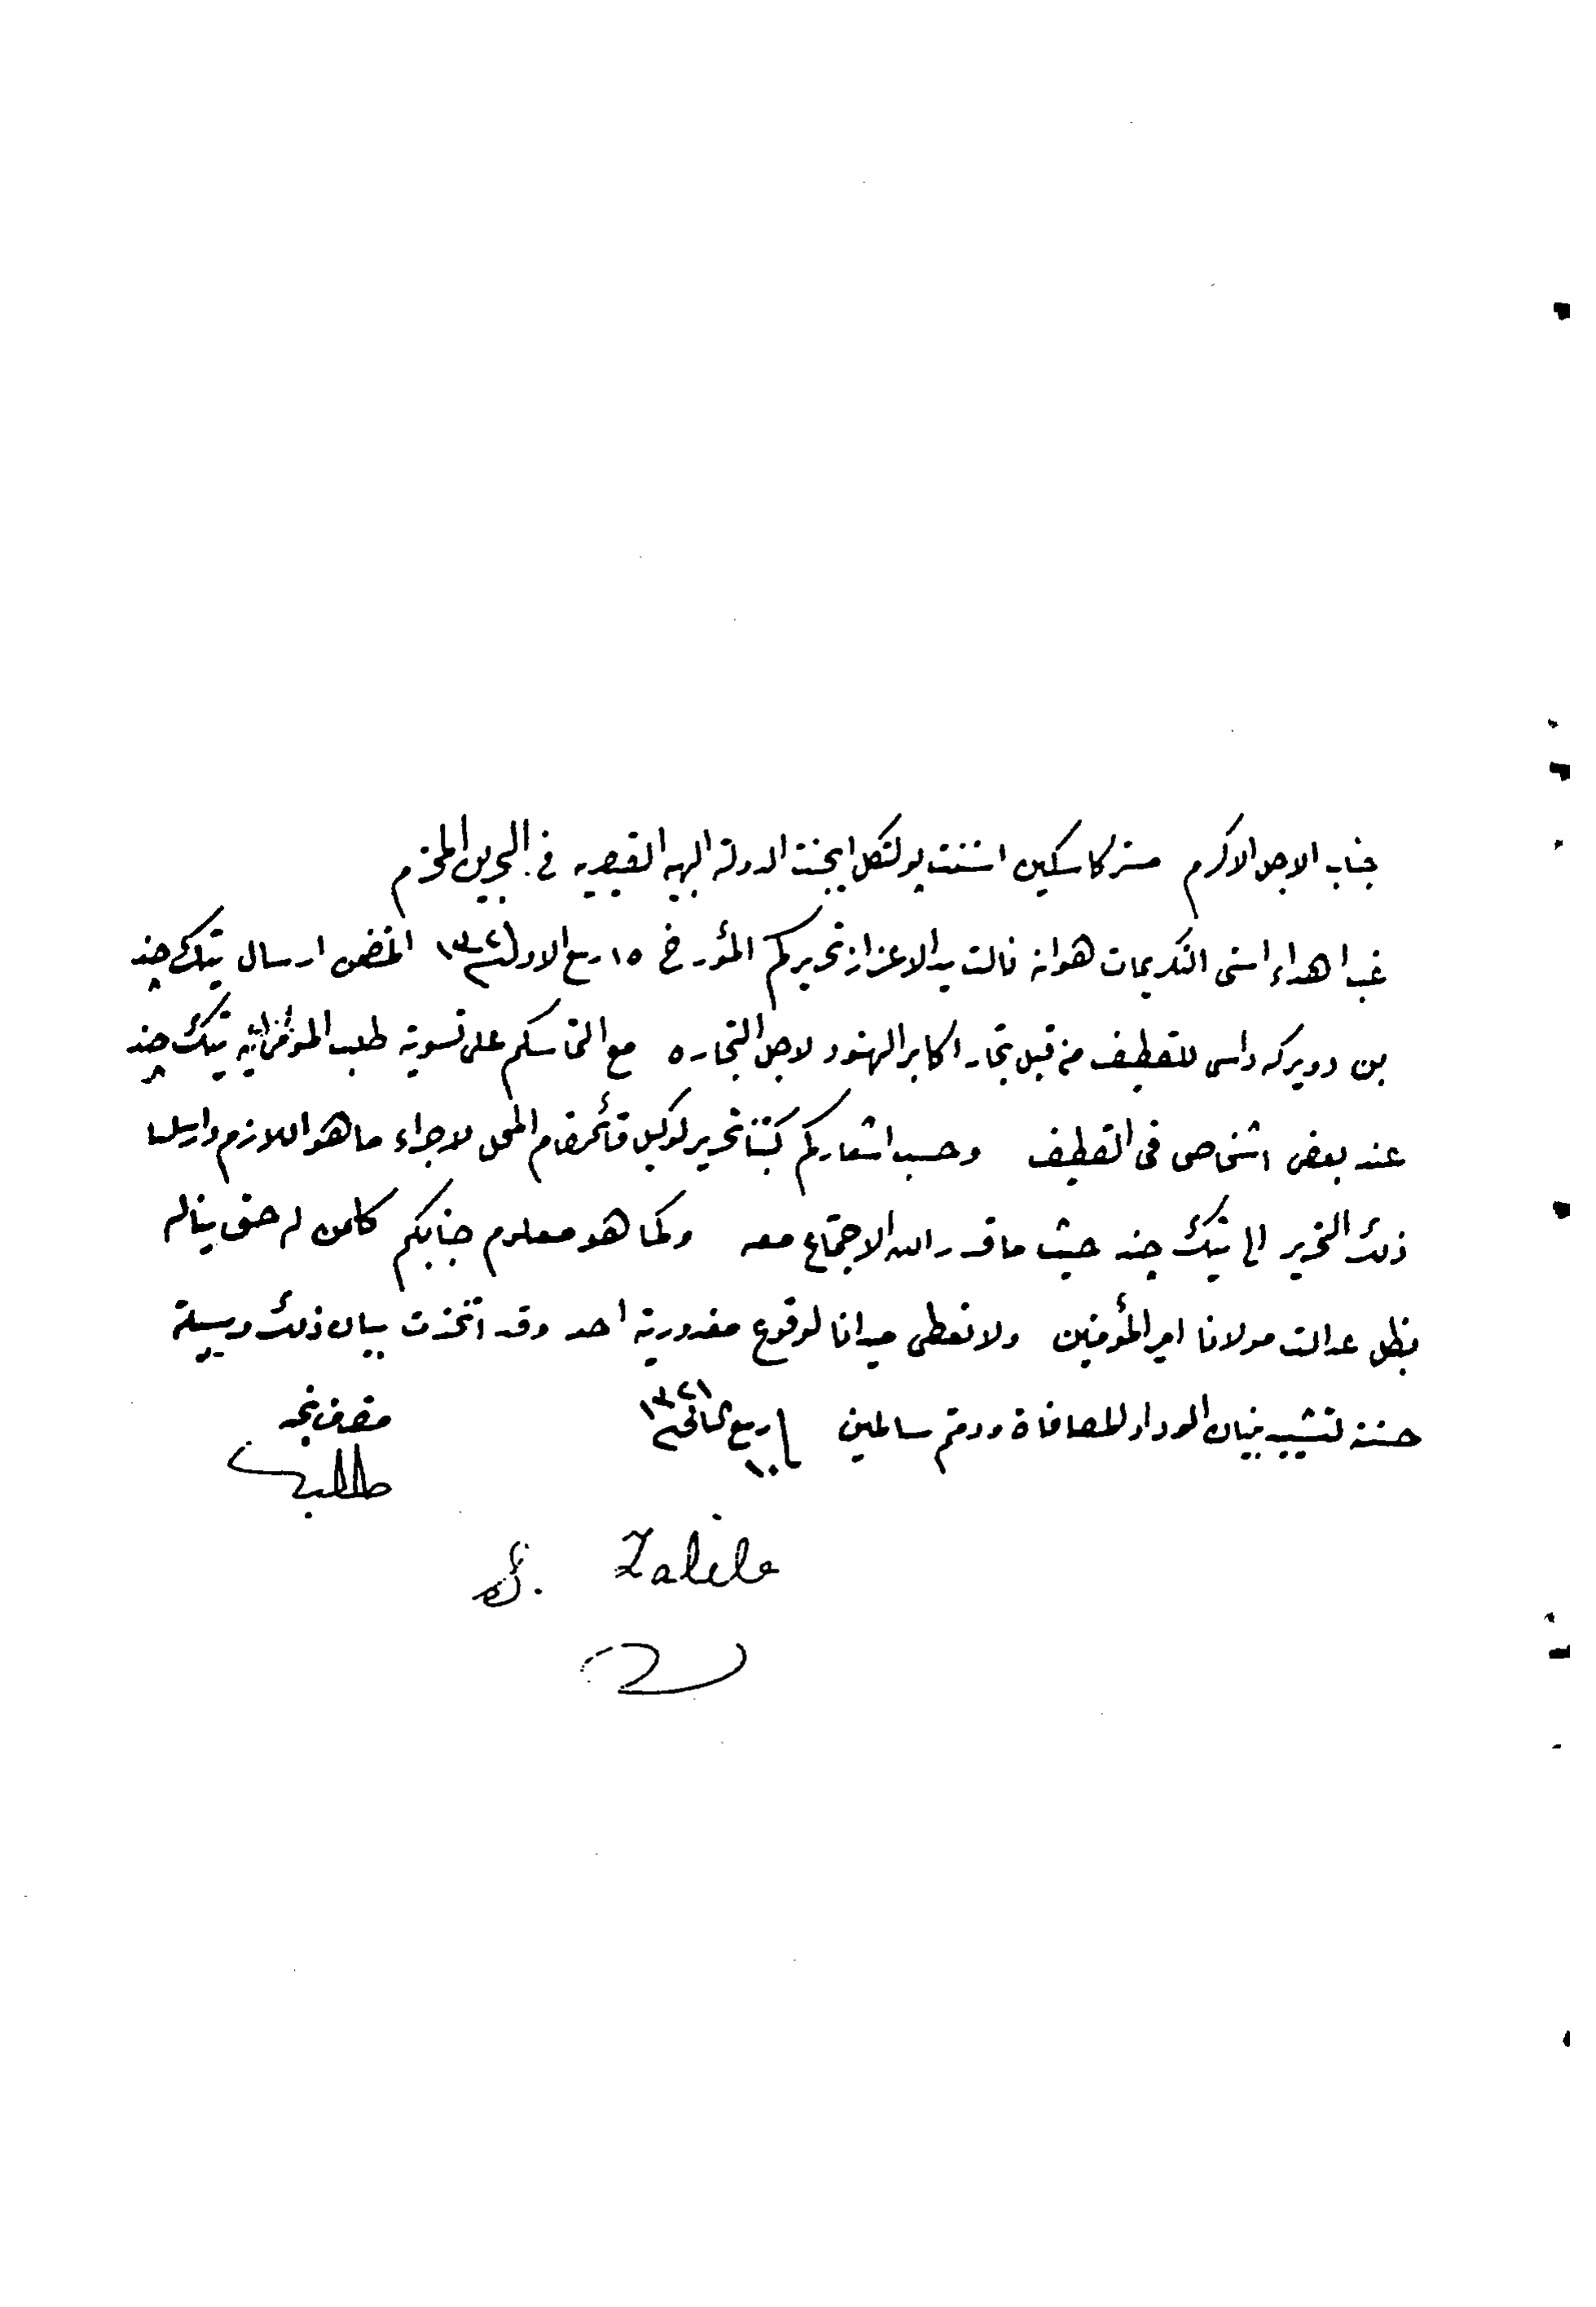 جناب الاجل الاكرم مستر كاسكين اسنتت پولتكل ايجنت الدولة البهيه القيصريه في البحرين المحترم
غب اهداء اسنى التكريمات هوانه نالت يد الاعزاز تحريركم المؤرخ ١٥ ربيع الاول سنه ١٣٢١ المتضمن ارسال تيك چند
بن دويركه داسى للقطيف من قبل تجار اكابر الهنود لاجل التجاره مع التماسكم على تسوية طلب تيك چند
عند بعض اشخاص في القطيف وحسب اشعاركم كتبنا تحرير لوكيل قائمقام المحل لاجراء ما هو اللازم وارسلنا
ذلك التحرير الى تيك چند حيث ما قدر الله الاجتماع معه وكما هو معلوم جنابكم كامن له حق يناله
بظل عدالت مولانا امير المؤمنين ولا نعطى ميدانا لوقوع مغدورية احد وقد اتخذت بيان ذلك وسيلة
حسنة لتشييد بنيان الوداد للمصافاة ودمتم سالمين ١٠ ربيع الثاني سنه ١٣٢١
متصرف نجد
طالب
S. Talib